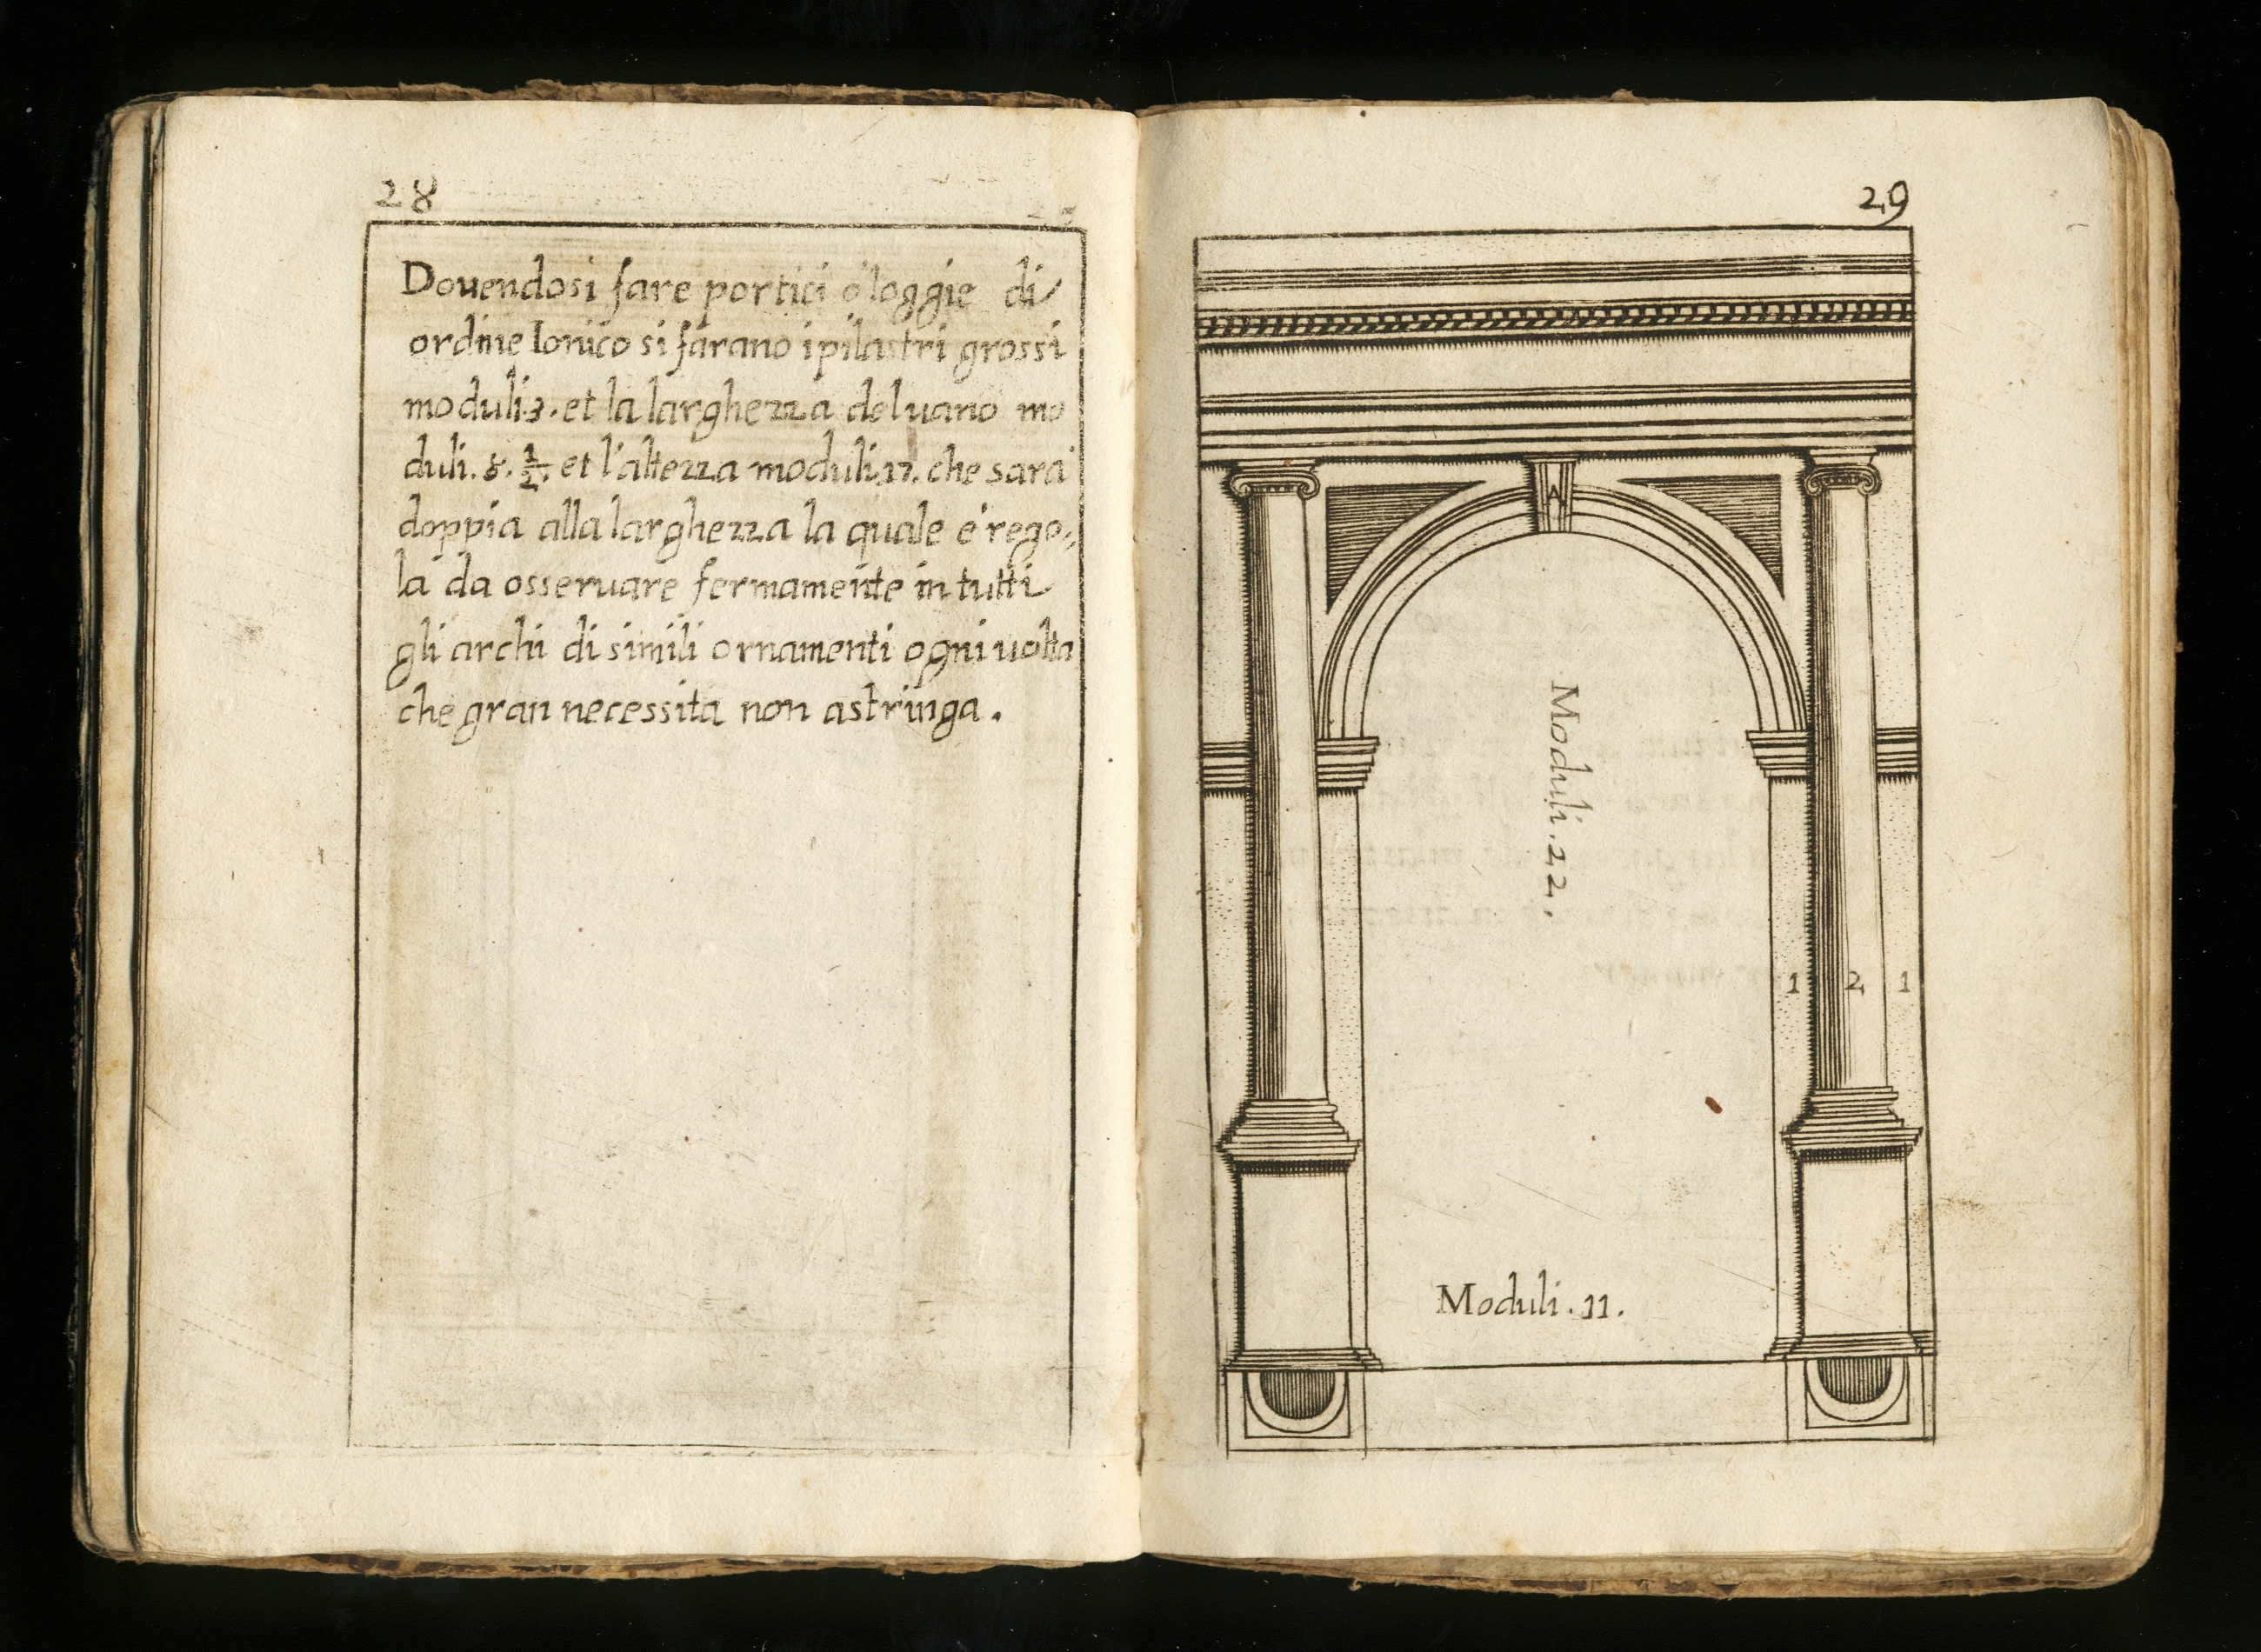 28
Douendosi fare portici o loggie di
ordine Ionico si farano i pilastri grossi
moduli.3. et la larghezza del uano mo
duli. 8. 1/2. et l'altezza moduli.17. che sara
doppia alla larghezza la quale e' rego,
la da osseruare fermamente in tutti
gli archi di simili ornamenti ogni uolta
che gran necessita non astringa.
29
A
Moduli.22.
1 2 1
Moduli.11.